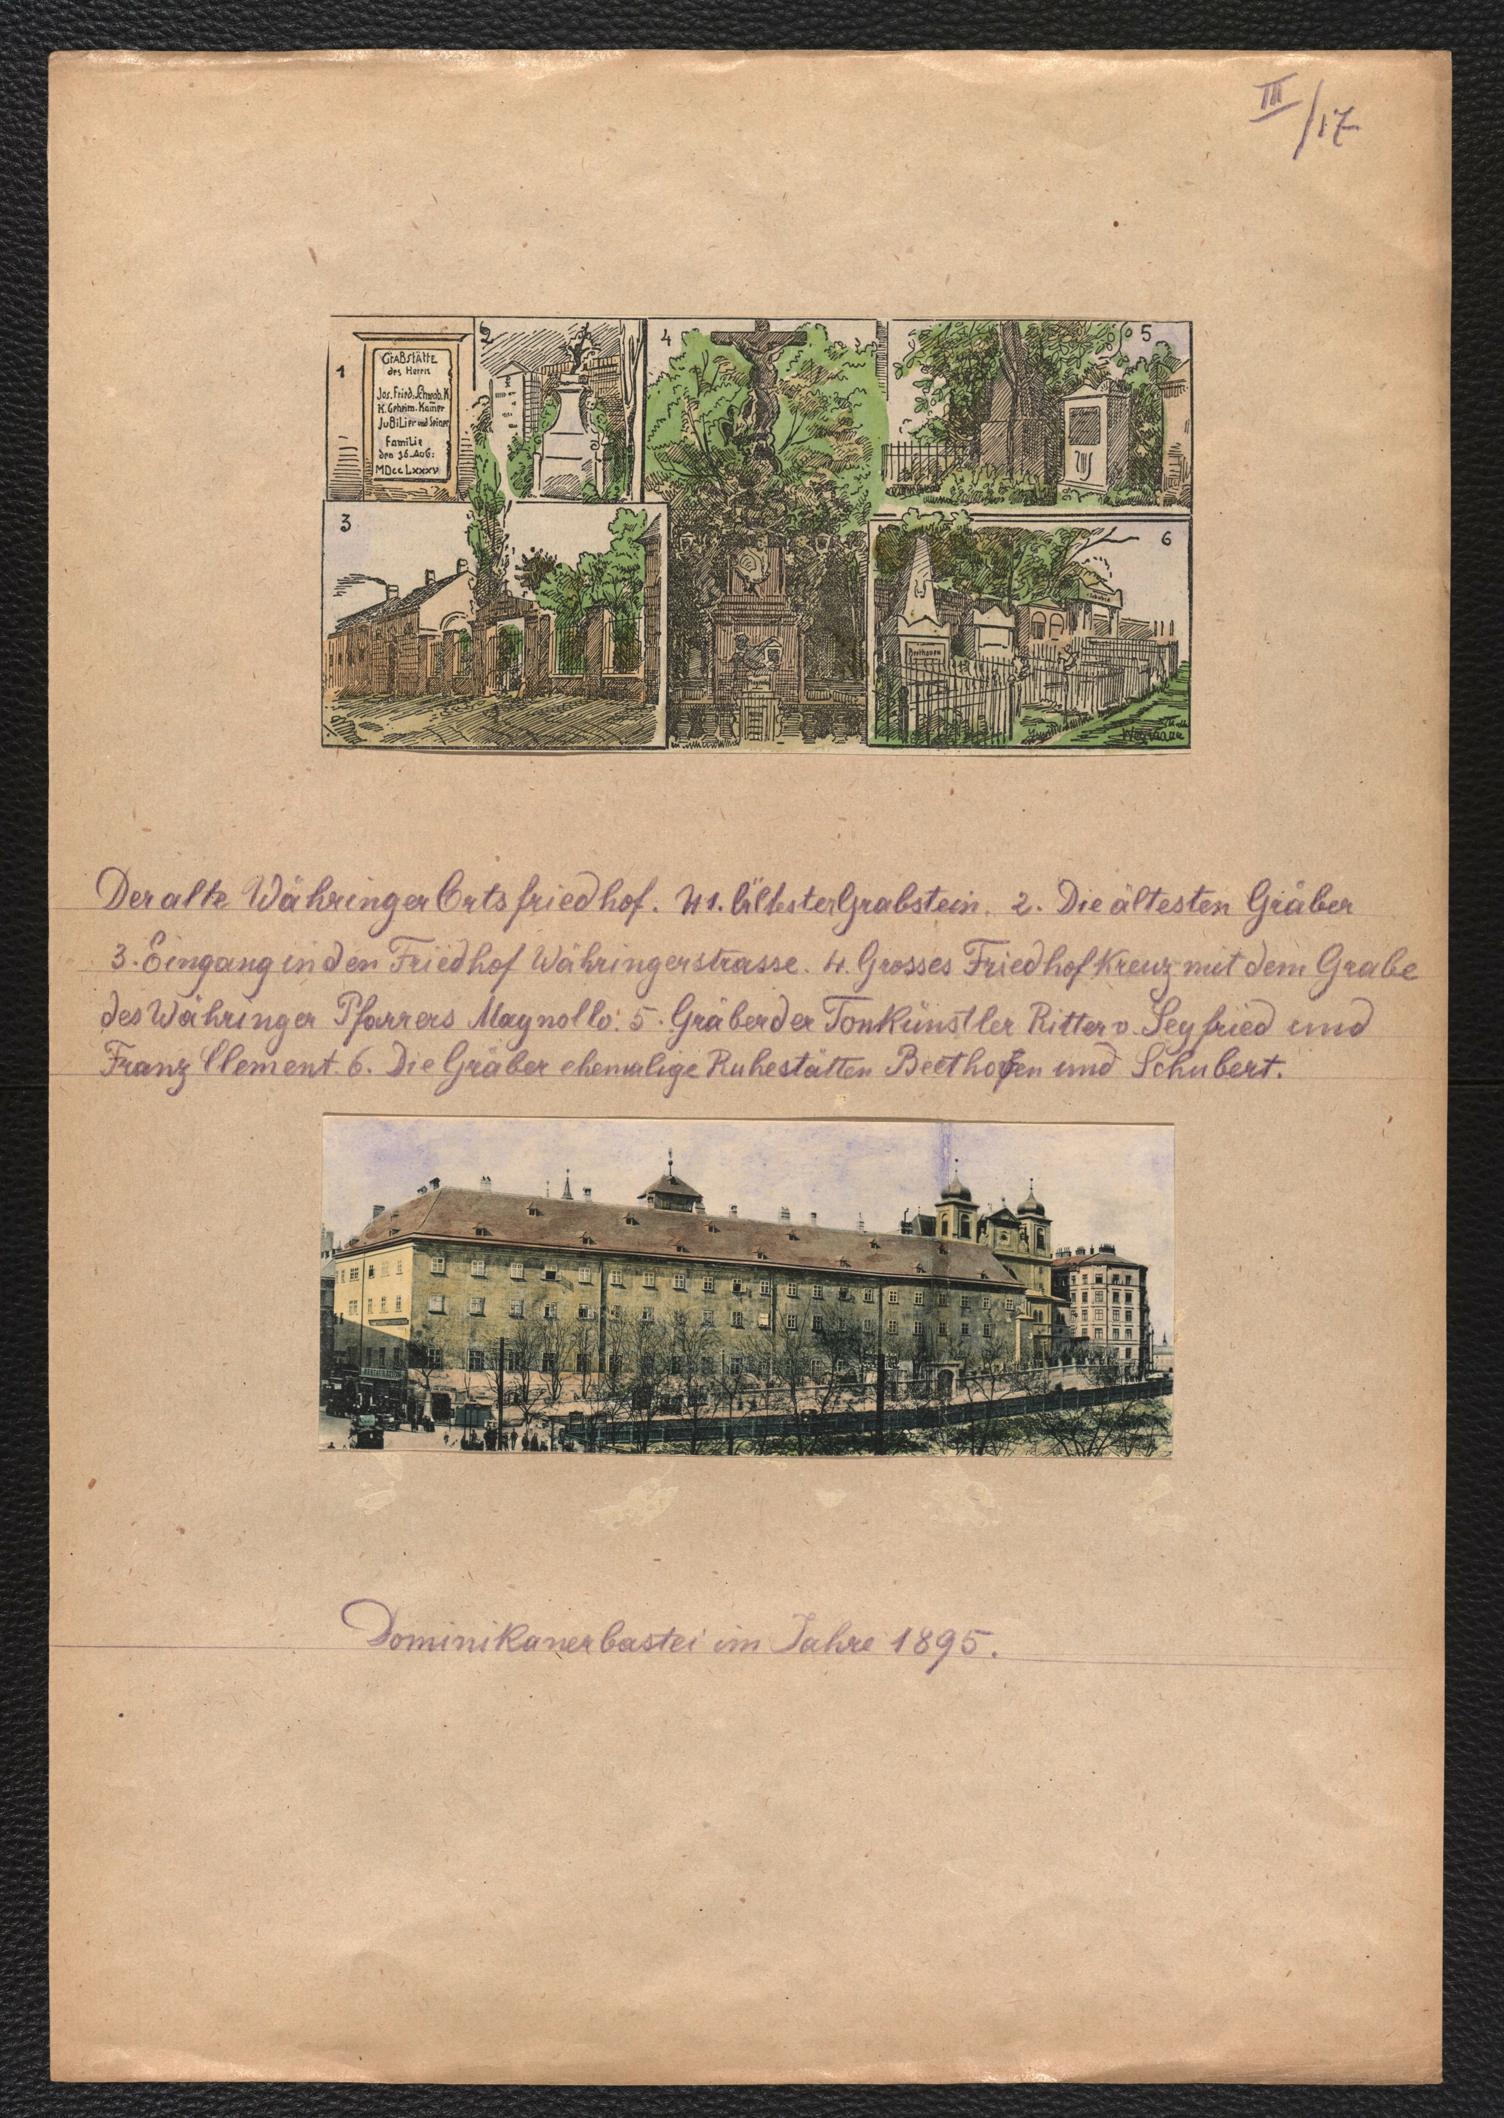 III/17
1
GRABSTÄTTE
des Herrn
Jos. Fried. Schwab. K.
K. Geheim. Kamer
JUBILIER und Seiner
Familie
den 16. AUG:
MDCCLXXXV
2
4
5
3
6
Beethoven
Der alte Währinger Ortsfriedhof. 1. Ältester Grabstein. 2. Die ältesten Gräber
3. Eingang in den Friedhof Währingerstrasse. 4. Grosses Friedhof Kreuz mit dem Grabe
des Währinger Pfarrers Magnollo. 5. Gräber der Tonkünstler Ritter v. Seyfried und
Franz Clement. 6. Die Gräber ehemalige Ruhestätten Beethofen und Schubert.
Dominikanerbastei im Jahre 1895.